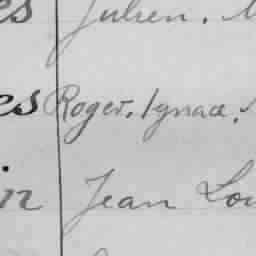 es Julien.
es Roger. Ignace.
in Jean Lou